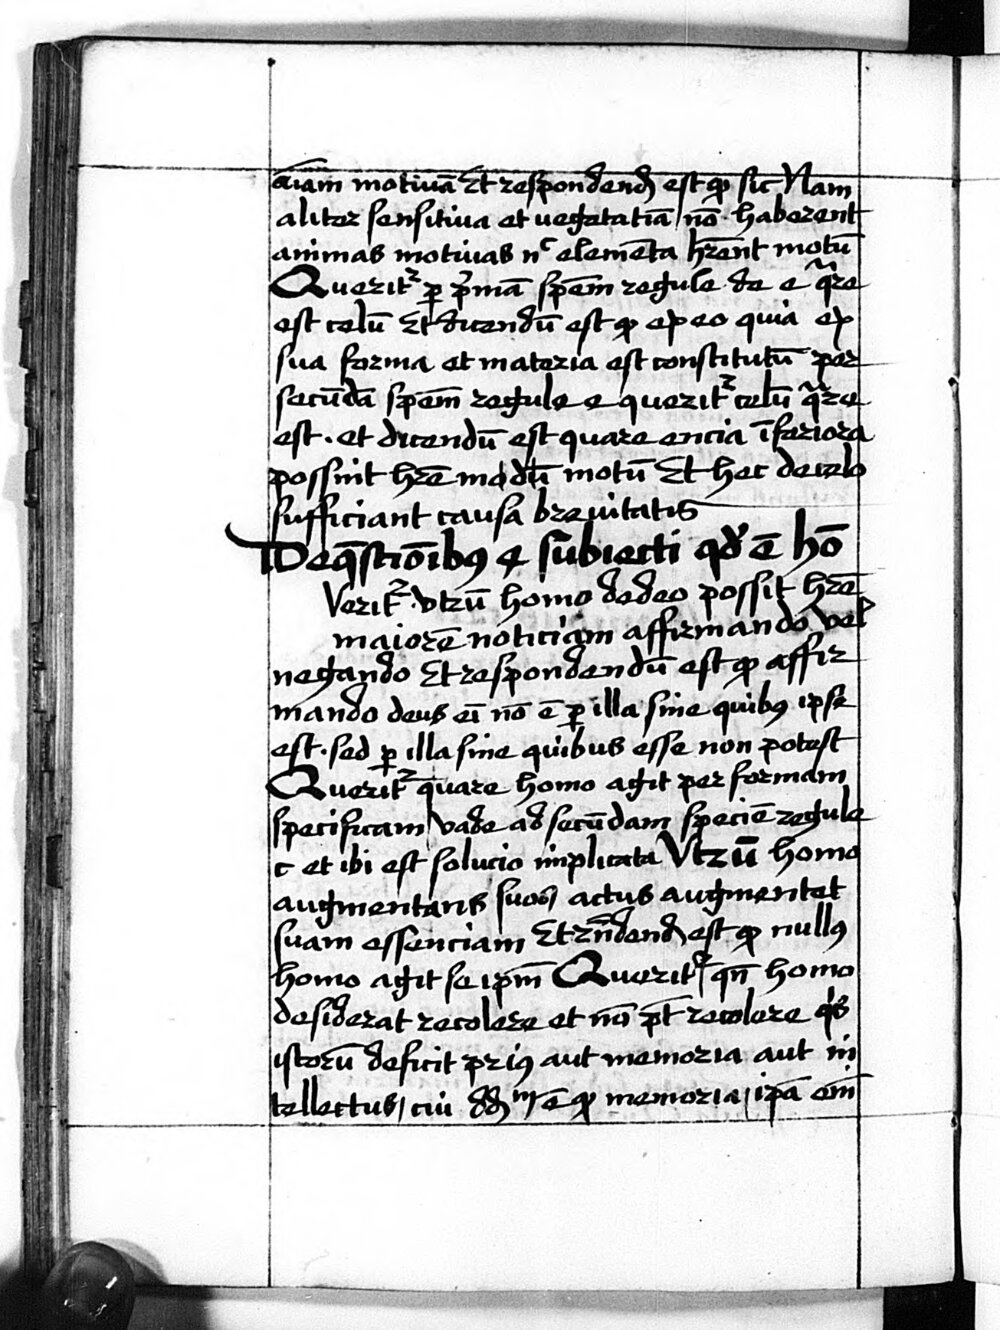 aīam motiuā Et respondend est ꝙ sic Nam
aliter sensitiua et uegetatiā nō haberent
animas motiuas nᶜ elemēta hrēnt motū
Queritᷣ ꝑ pͥmā spēm regule de e qͣre
est celū Et dicendū est ꝙ ex eo quia ex
sua forma et materia est constitutū per
secūdā spēm regule e queritᷣ celū qͣre
est · et dicendū est quare encia īferiora
possint hrē motū Et hec de celo
sufficiant causa breuitatis
De qēstiōibꝰ 4 subiecti qđ ē hō
Veritᷣ · vtrū homo de deo possit hrē
maiorē noticiam affirmando vel
negando Et respondendū est ꝙ affir
mando deus eī nō ē ꝑ illa sine quibꝰ ipse
est · sed ꝑ illa sine quibus esse non potest
Queritᷣ quare homo agit per formam
specificam / vade ad secūdam speciē regule
c et ibi est solucio implicata Vtrū homo
augmentans suos actus augmentet
suam essenciam Et rn̄dend est ꝙ nullꝰ
homo agit se ipm̄ Queritᷣ qn̄ homo
desiderat recolere et nō pt̄ recolere qͥs
istorū deficit priꝰ aut memoria aut in
tellectus / cui ē ꝙ memoria / ipā em̄